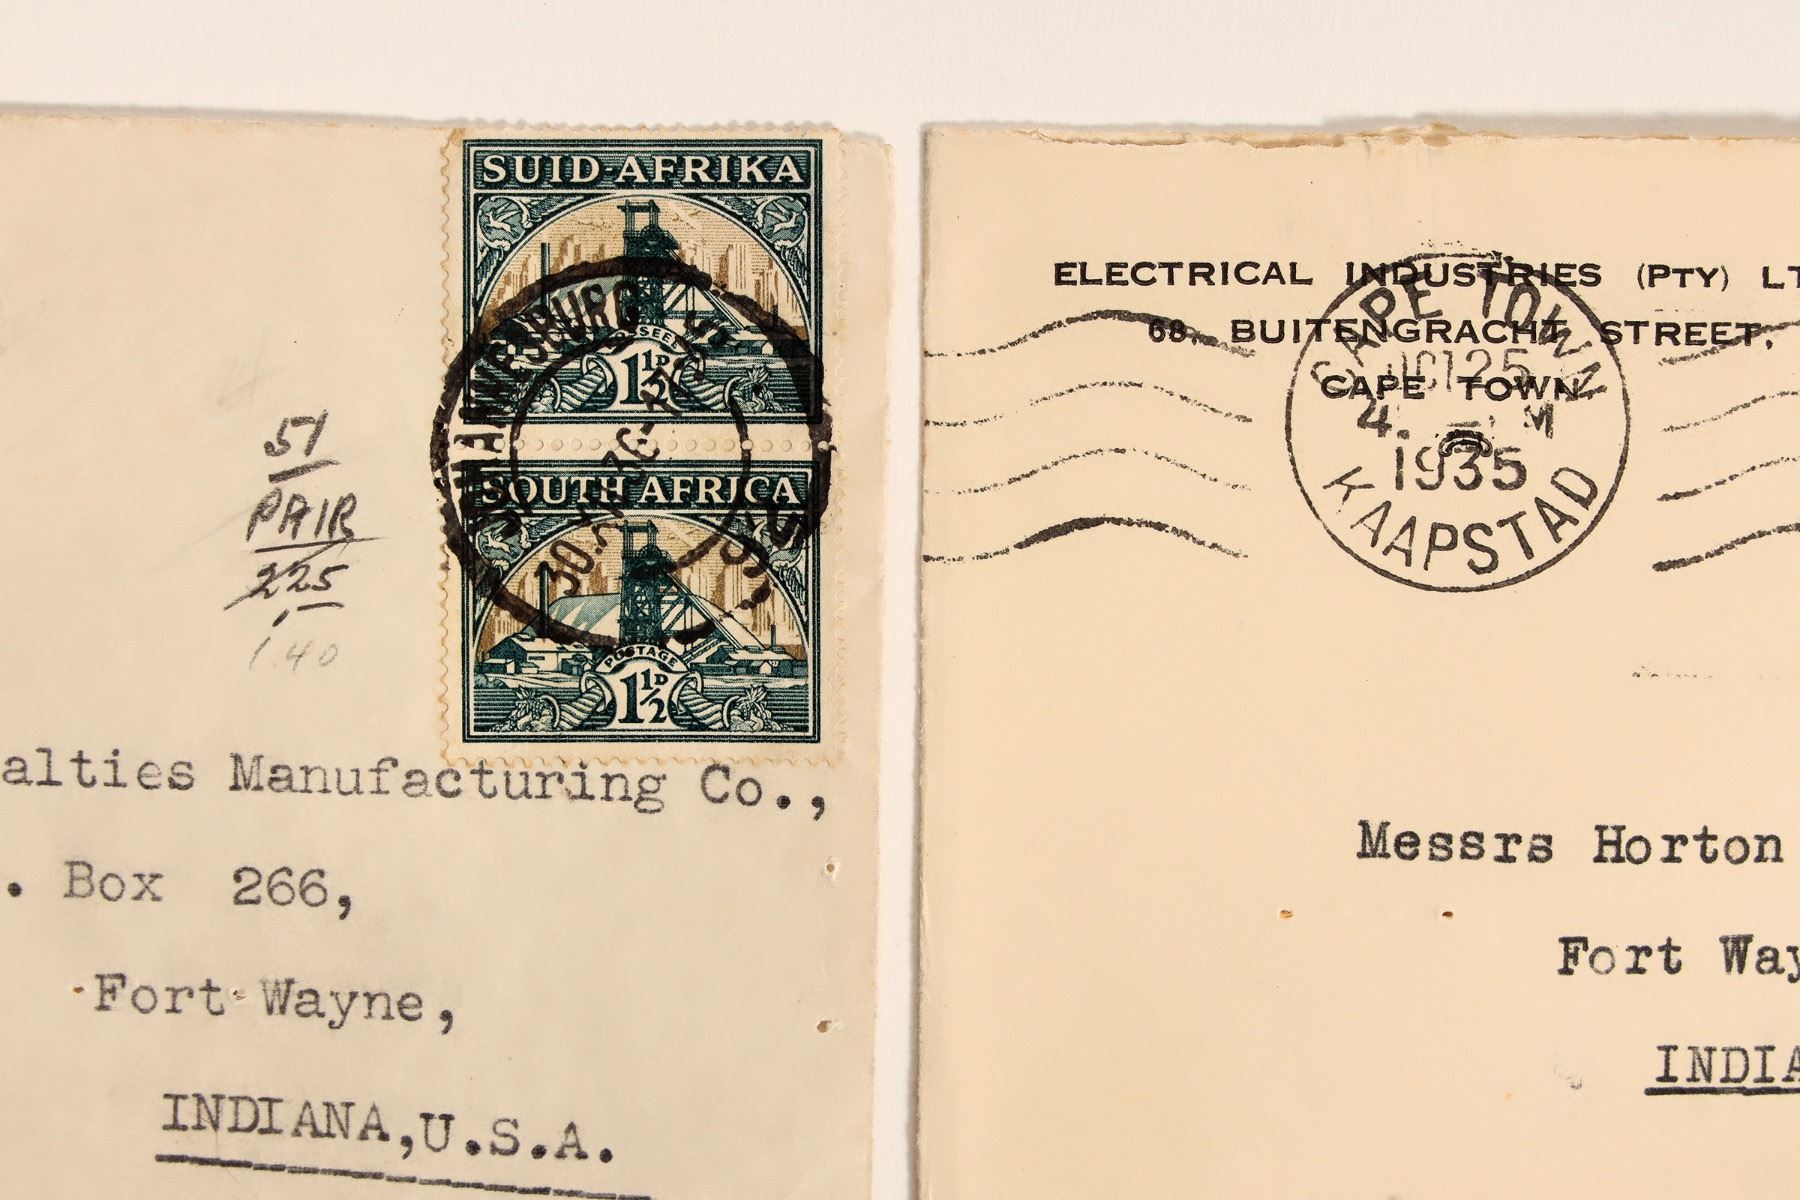 SUID-AFRIKA
1½D
SOUTH AFRICA
POSTAGE
1½D
51
PAIR
2.25
1.40
alties Manufacturing Co.,
. Box 266,
Fort Wayne,
INDIANA, U.S.A.
ELECTRICAL INDUSTRIES (PTY) LT
68, BUITENGRACHT STREET,
CAPE TOWN
CAPE TOWN
25
4. M
1935
KAAPSTAD
Messrs Horton
Fort Way
INDIA